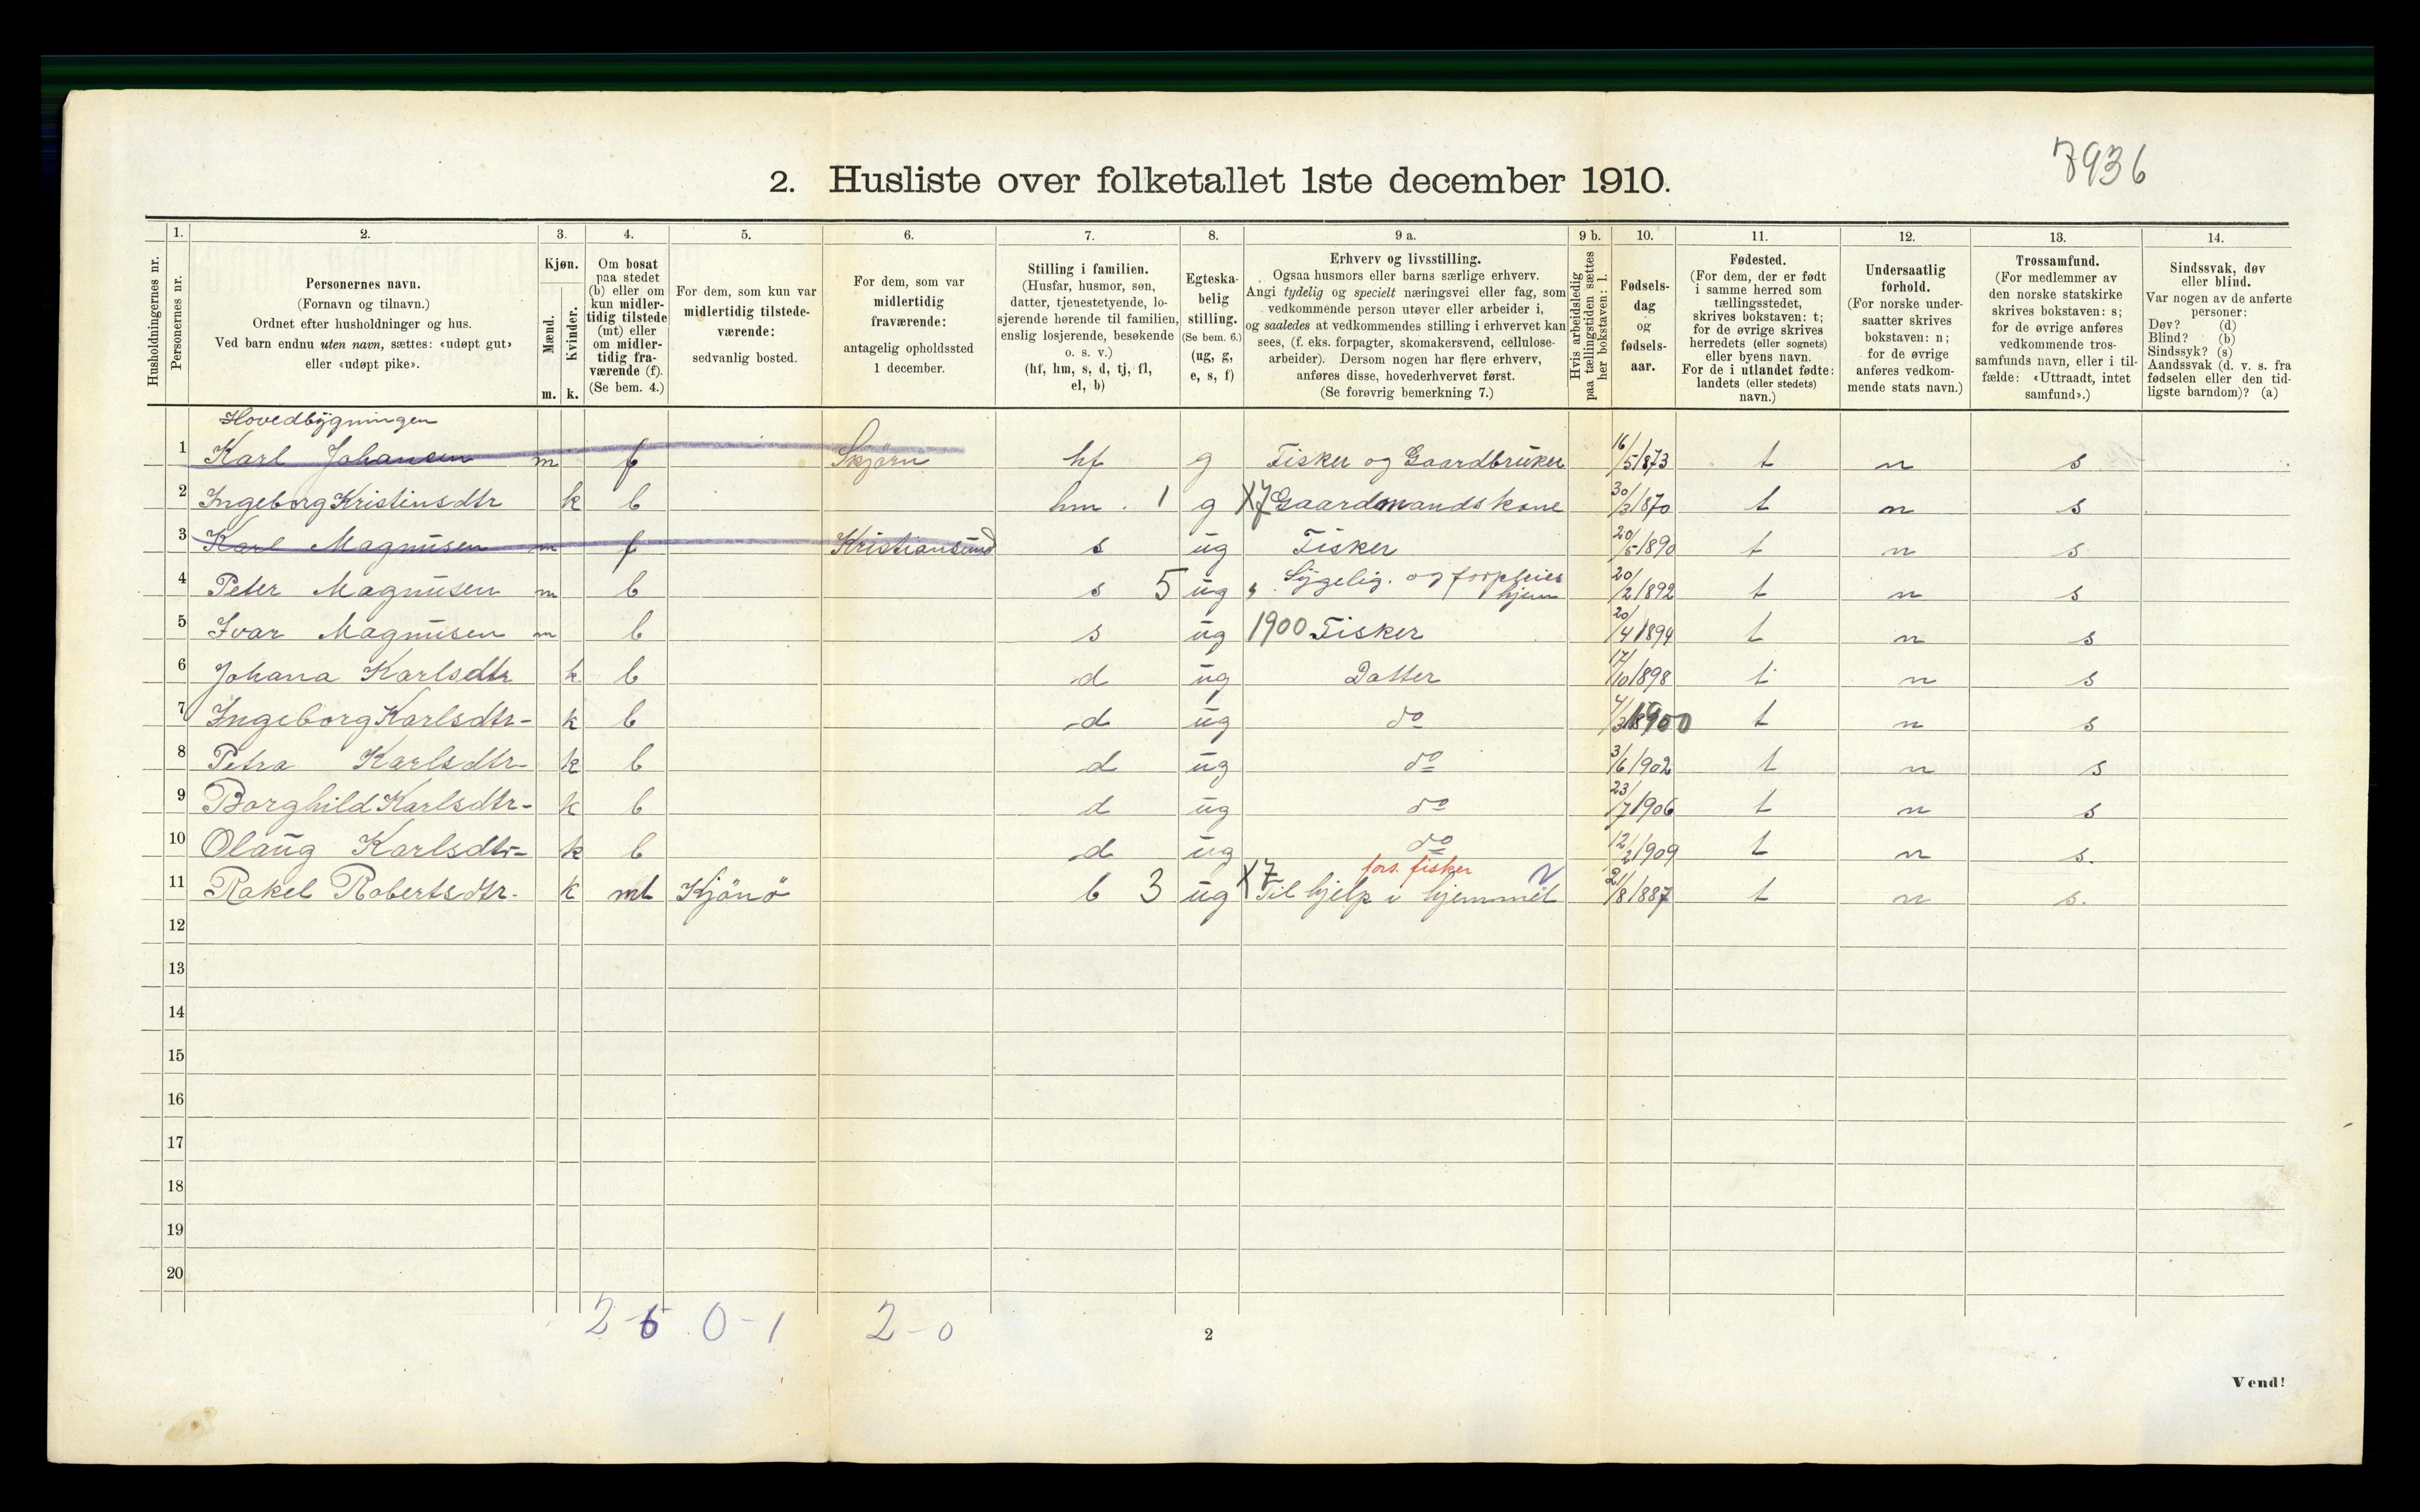 7936
2. Husliste over folketallet 1ste december 1910.
Husholdningernes nr.
1.
Personernes nr.
2.
Personernes navn.
(Fornavn og tilnavn.)
Ordnet efter husholdninger og hus.
Ved barn endnu uten navn, sættes: «udøpt gut»
eller «udøpt pike».
3.
Kjøn.
Mænd.
Kvinder.
m. k.
4.
Om bosat
paa stedet
(b) eller om
kun midler-
tidig tilstede
(mt) eller
om midler-
tidig fra-
værende (f).
(Se bem. 4.)
5.
For dem, som kun var
midlertidig tilstede-
værende:
sedvanlig bosted.
6.
For dem, som var
midlertidig
fraværende:
antagelig opholdssted
1 december.
7.
Stilling i familien.
(Husfar, husmor, søn,
datter, tjenestetyende, lo-
sjerende hørende til familien,
enslig losjerende, besøkende
o. s. v.)
(hf, hm, s, d, tj, fl,
el, b)
8.
Egteska-
belig
stilling.
(Se bem. 6.)
(ug, g,
e, s, f)
9 a.
Erhverv og livsstilling.
Ogsaa husmors eller barns særlige erhverv.
Angi tydelig og specielt næringsvei eller fag, som
vedkommende person utøver eller arbeider i,
og saaledes at vedkommendes stilling i erhvervet kan
sees, (f. eks. forpagter, skomakersvend, cellulose-
arbeider). Dersom nogen har flere erhverv,
anføres disse, hovederhvervet først.
(Se forøvrig bemerkning 7.)
9 b.
Hvis arbeidsledig
paa tællingstiden sættes
her bokstaven: l.
10.
Fødsels-
dag
og
fødsels-
aar.
11.
Fødested.
(For dem, der er født
i samme herred som
tællingsstedet,
skrives bokstaven: t;
for de øvrige skrives
herredets (eller sognets)
eller byens navn.
For de i utlandet fødte:
landets (eller stedets)
navn.)
12.
Undersaatlig
forhold.
(For norske under-
saatter skrives
bokstaven: n;
for de øvrige
anføres vedkom-
mende stats navn.)
13.
Trossamfund.
(For medlemmer av
den norske statskirke
skrives bokstaven: s;
for de øvrige anføres
vedkommende tros-
samfunds navn, eller i til-
fælde: «Uttraadt, intet
samfund».)
14.
Sindssvak, døv
eller blind.
Var nogen av de anførte
personer:
Døv? (d)
Blind? (b)
Sindssyk? (s)
Aandssvak (d. v. s. fra
fødselen eller den tid-
ligste barndom)? (a)
Hovedbygningen
1 Karl Johansen m f Skjørn hf g Fisker og Gaardbruker 16/5 1873 t n s
2 Ingeborg Kristinsdtr k b hm. 1 g X7 Gaardmandskone 30/3 1870 t n s
3 Karl Magnusen m f Kristiansund s ug Fisker 20/5 1890 t n s
4 Peter Magnusen m b s 5 ug Sygelig. og forpleies hjem 20/2 1892 t n s
5 Ivar Magnusen m b s ug 1900 Fisker 20/4 1894 t n s
6 Johana Karlsdtr k b d ug Datter 17/10 1898 t n s
7 Ingeborg Karlsdtr- k b d ug do 4/3 1900 t n s
8 Petra Karlsdtr- k b d ug do 3/6 1902 t n s
9 Borghild Karlsdtr- k b d ug do 23/7 1906 t n s
10 Olaug Karlsdtr- k b d ug do 12/2 1909 t n s.
fors. fisker
11 Rakel Robertsdtr. k mt Kjönö b 3 ug X7 Til hjelp i hjemmet 21/8 1887 t n s.
12
13
14
15
16
17
18
19
20
2-6 0-1 2-0
2
Vend!